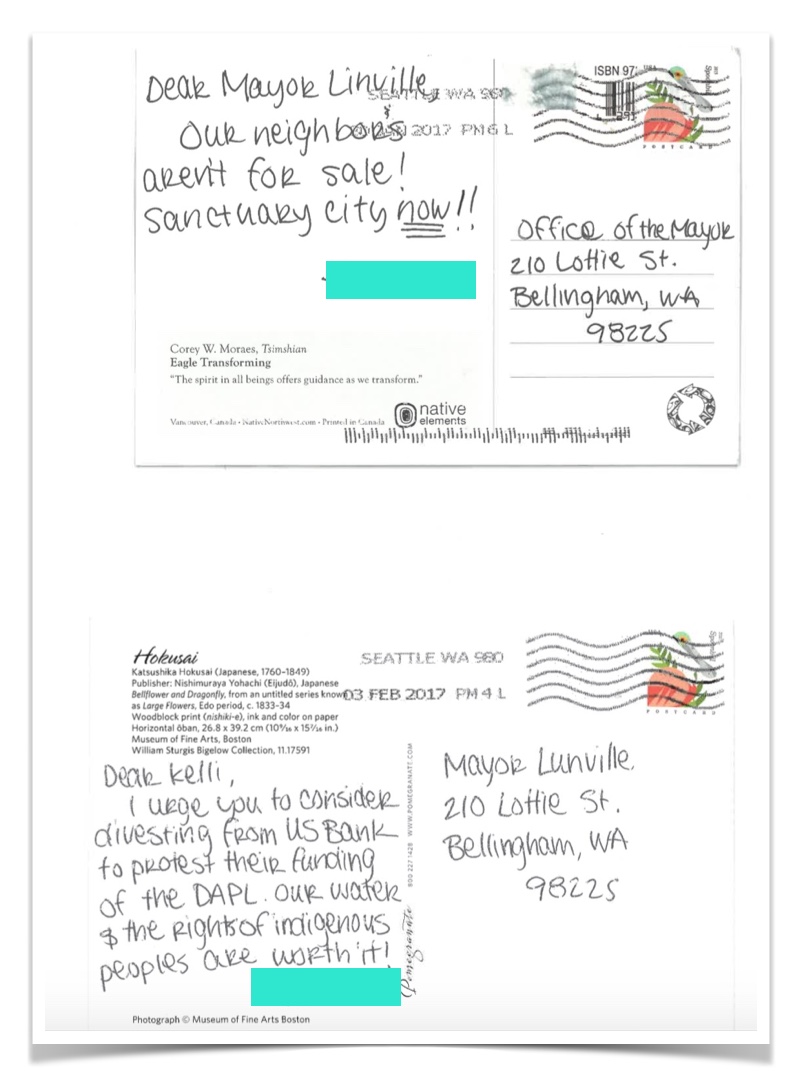 Dear Mayor Linville,
Our neighbors
aren't for sale!
Sanctuary city now!!
SEATTLE WA 980
2017 PM 6 L
ISBN 97
POSTCARD
Office of the Mayor
210 Lottie St.
Bellingham, WA
98225
Corey W. Moraes, Tsimshian
Eagle Transforming
"The spirit in all beings offers guidance as we transform."
Vancouver, Canada • NativeNorthwest.com • Printed in Canada
native
elements
Hokusai
Katsushika Hokusai (Japanese, 1760–1849)
Publisher: Nishimuraya Yohachi (Eijudō), Japanese
Bellflower and Dragonfly, from an untitled series known
as Large Flowers, Edo period, c. 1833–34
Woodblock print (nishiki-e), ink and color on paper
Horizontal ōban, 26.8 x 39.2 cm (10 9/16 x 15 7/16 in.)
Museum of Fine Arts, Boston
William Sturgis Bigelow Collection, 11.17591
SEATTLE WA 980
03 FEB 2017 PM 4 L
POSTCARD
Dear Kelli,
I urge you to consider
divesting from US Bank
to protest their funding
of the DAPL. Our water
& the rights of indigenous
peoples are worth it!
800 227 1428 WWW.POMEGRANATE.COM
Pomegranate
Mayor Lunville
210 Lottie St.
Bellingham, WA
98225
Photograph © Museum of Fine Arts Boston